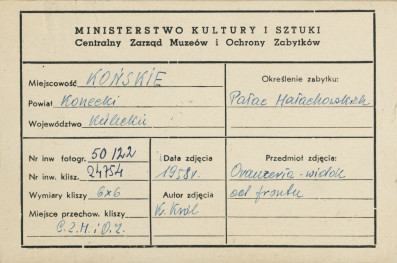 MINISTERSTWO KULTURY I SZTUKI
Centralny Zarząd Muzeów i Ochrony Zabytków
Miejscowość KOŃSKIE
Powiat Konecki
Województwo Kieleckie
Określenie zabytku:
Pałac Małachowskich
Nr inw fotogr. 50122
Nr inw. klisz. 24754
Wymiary kliszy 6x6
Miejsce przechow. kliszy
C.Z.M.i O.Z.
Data zdjęcia
1958r.
Autor zdjęcia
K. Król
Przedmiot zdjęcia:
Oranżeria - widok
od frontu